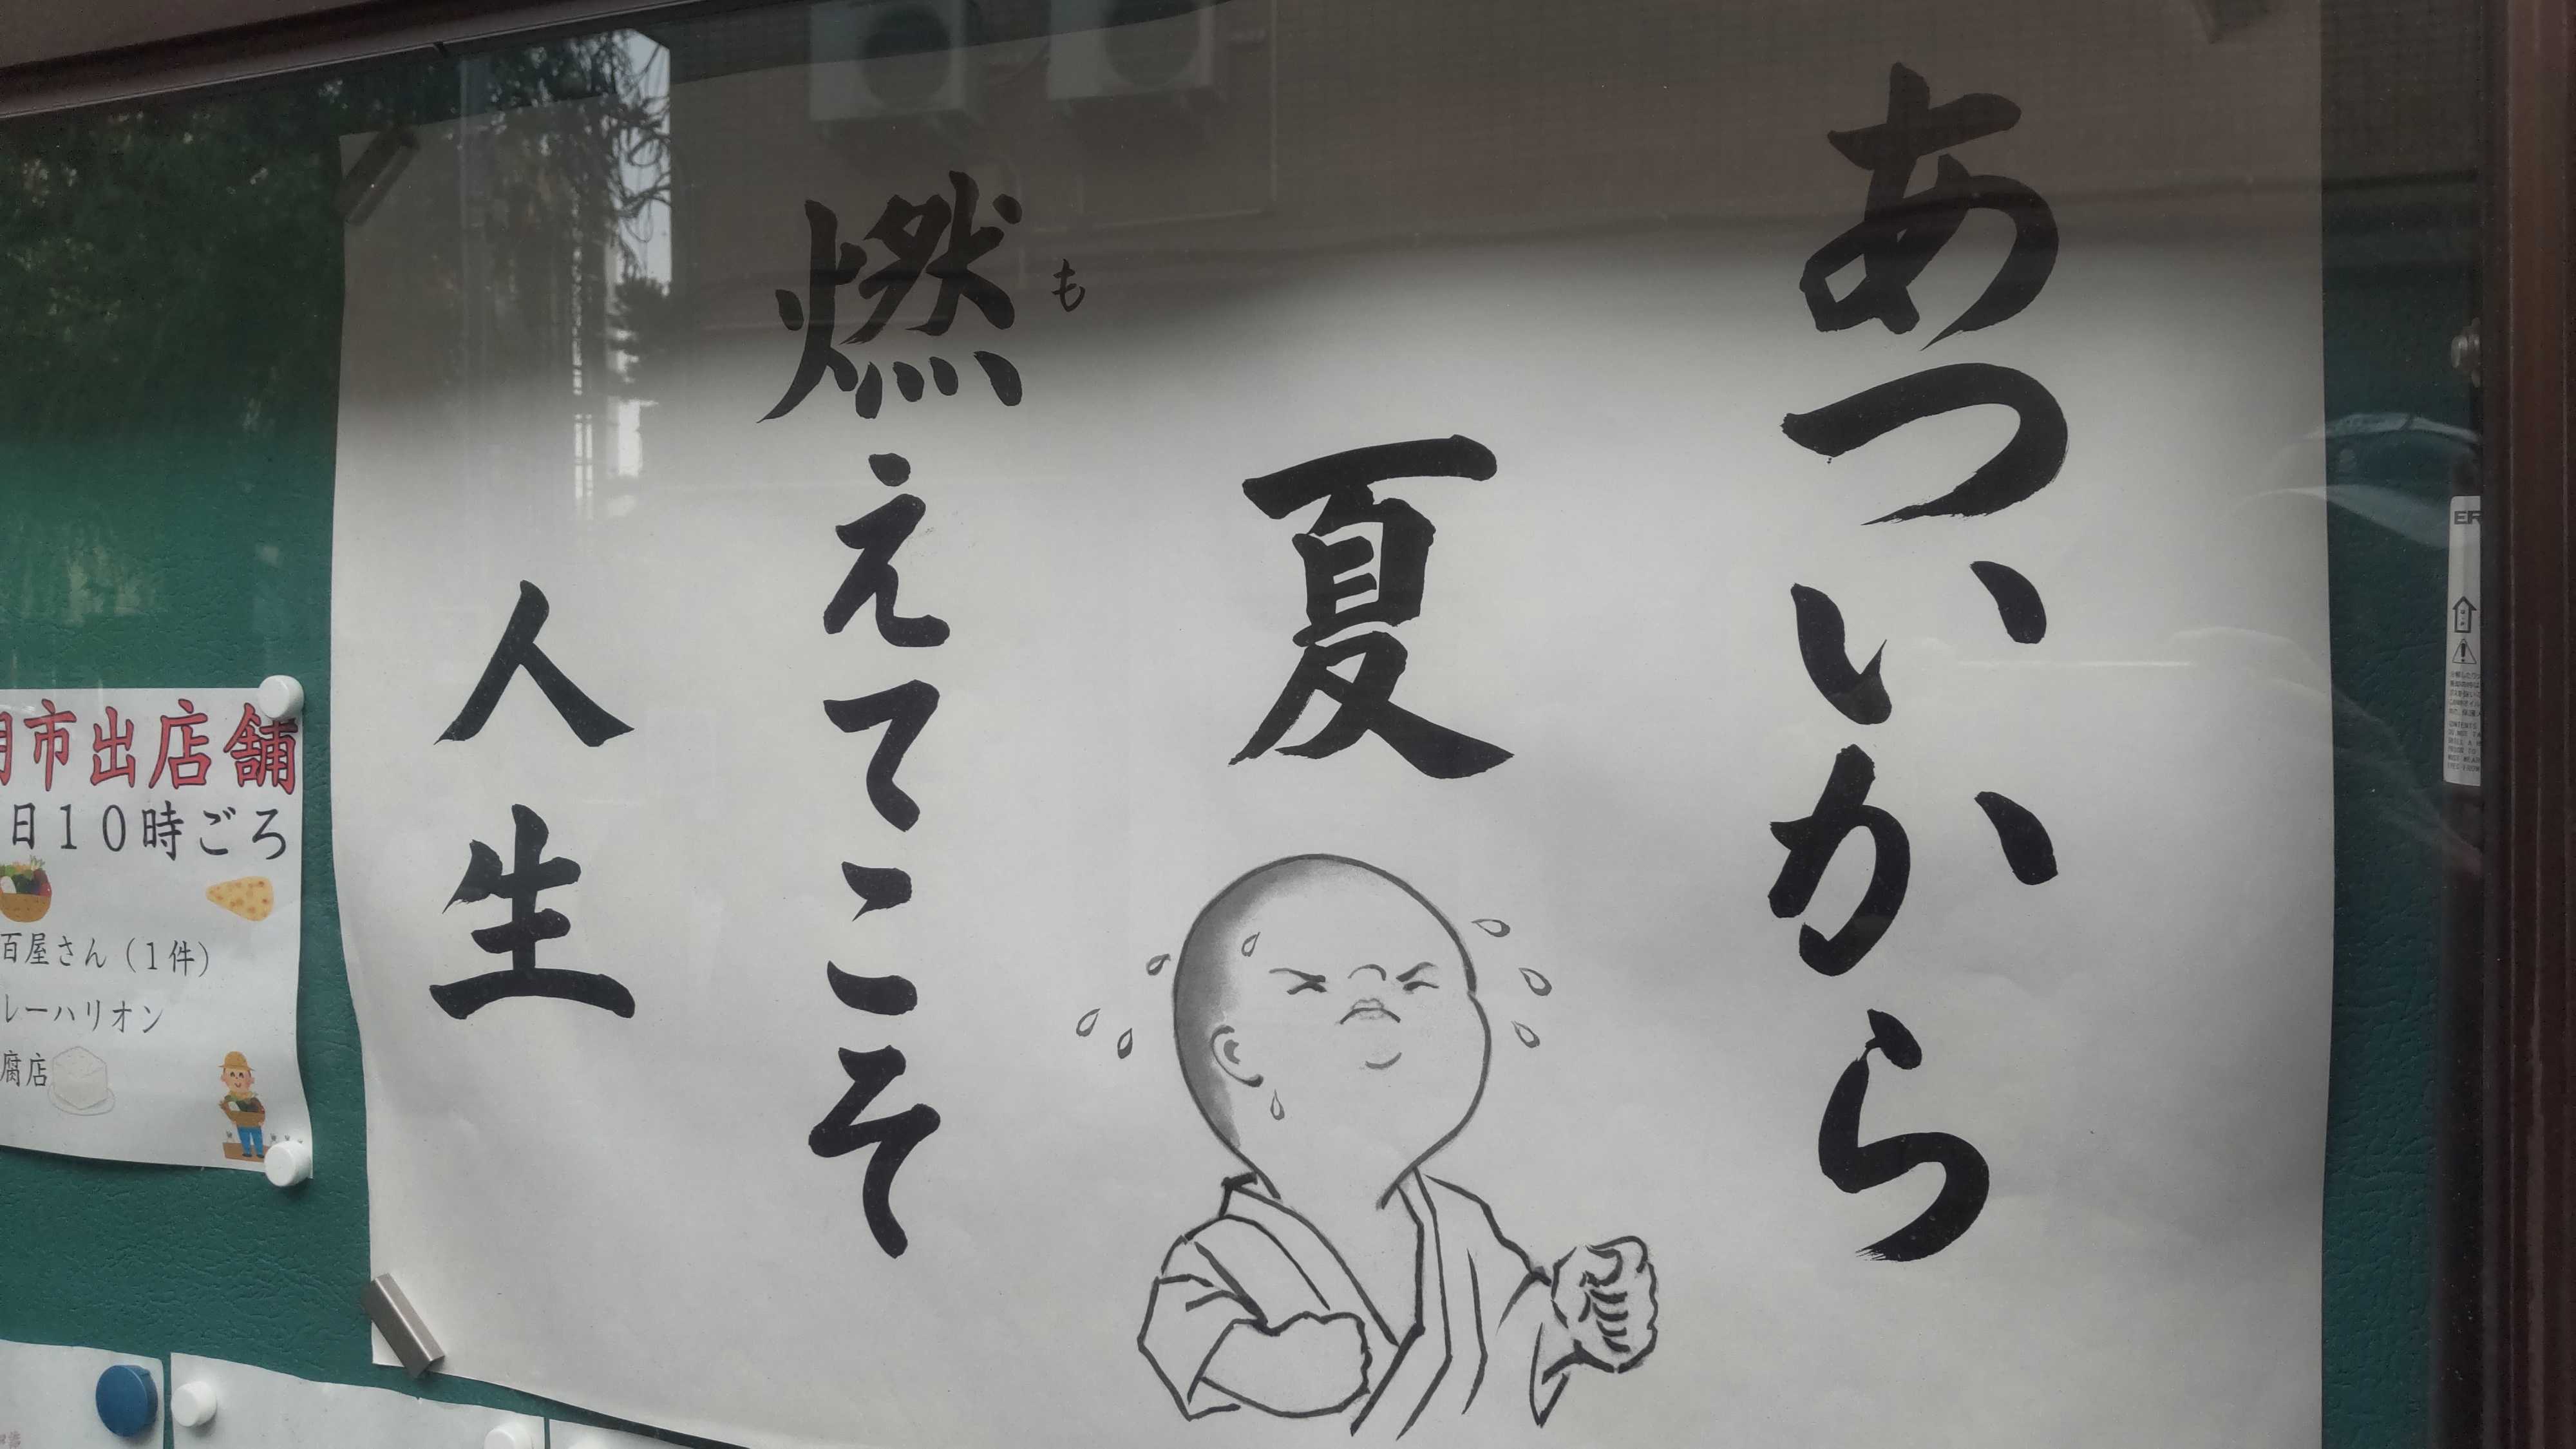 あついから
夏
燃えてこそ
も
人生
市出店舗
日10時ごろ
百屋さん（１件）
レーハリオン
腐店